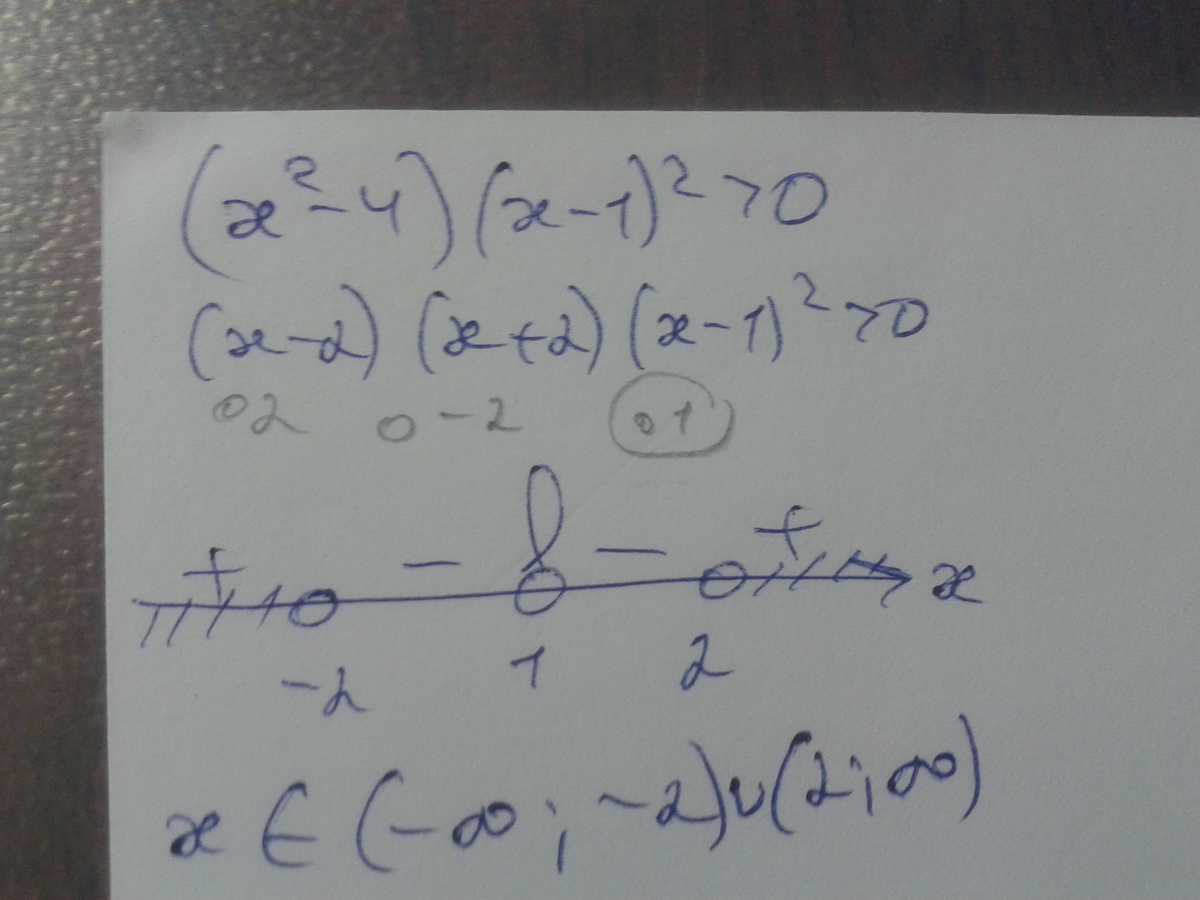 (x²-4)(x-1)²>0
(x-2)(x+2)(x-1)²>0
∘2 ∘-2 ∘1
+ - - + x
-2 1 2
x∈(-∞;-2)∪(2;∞)